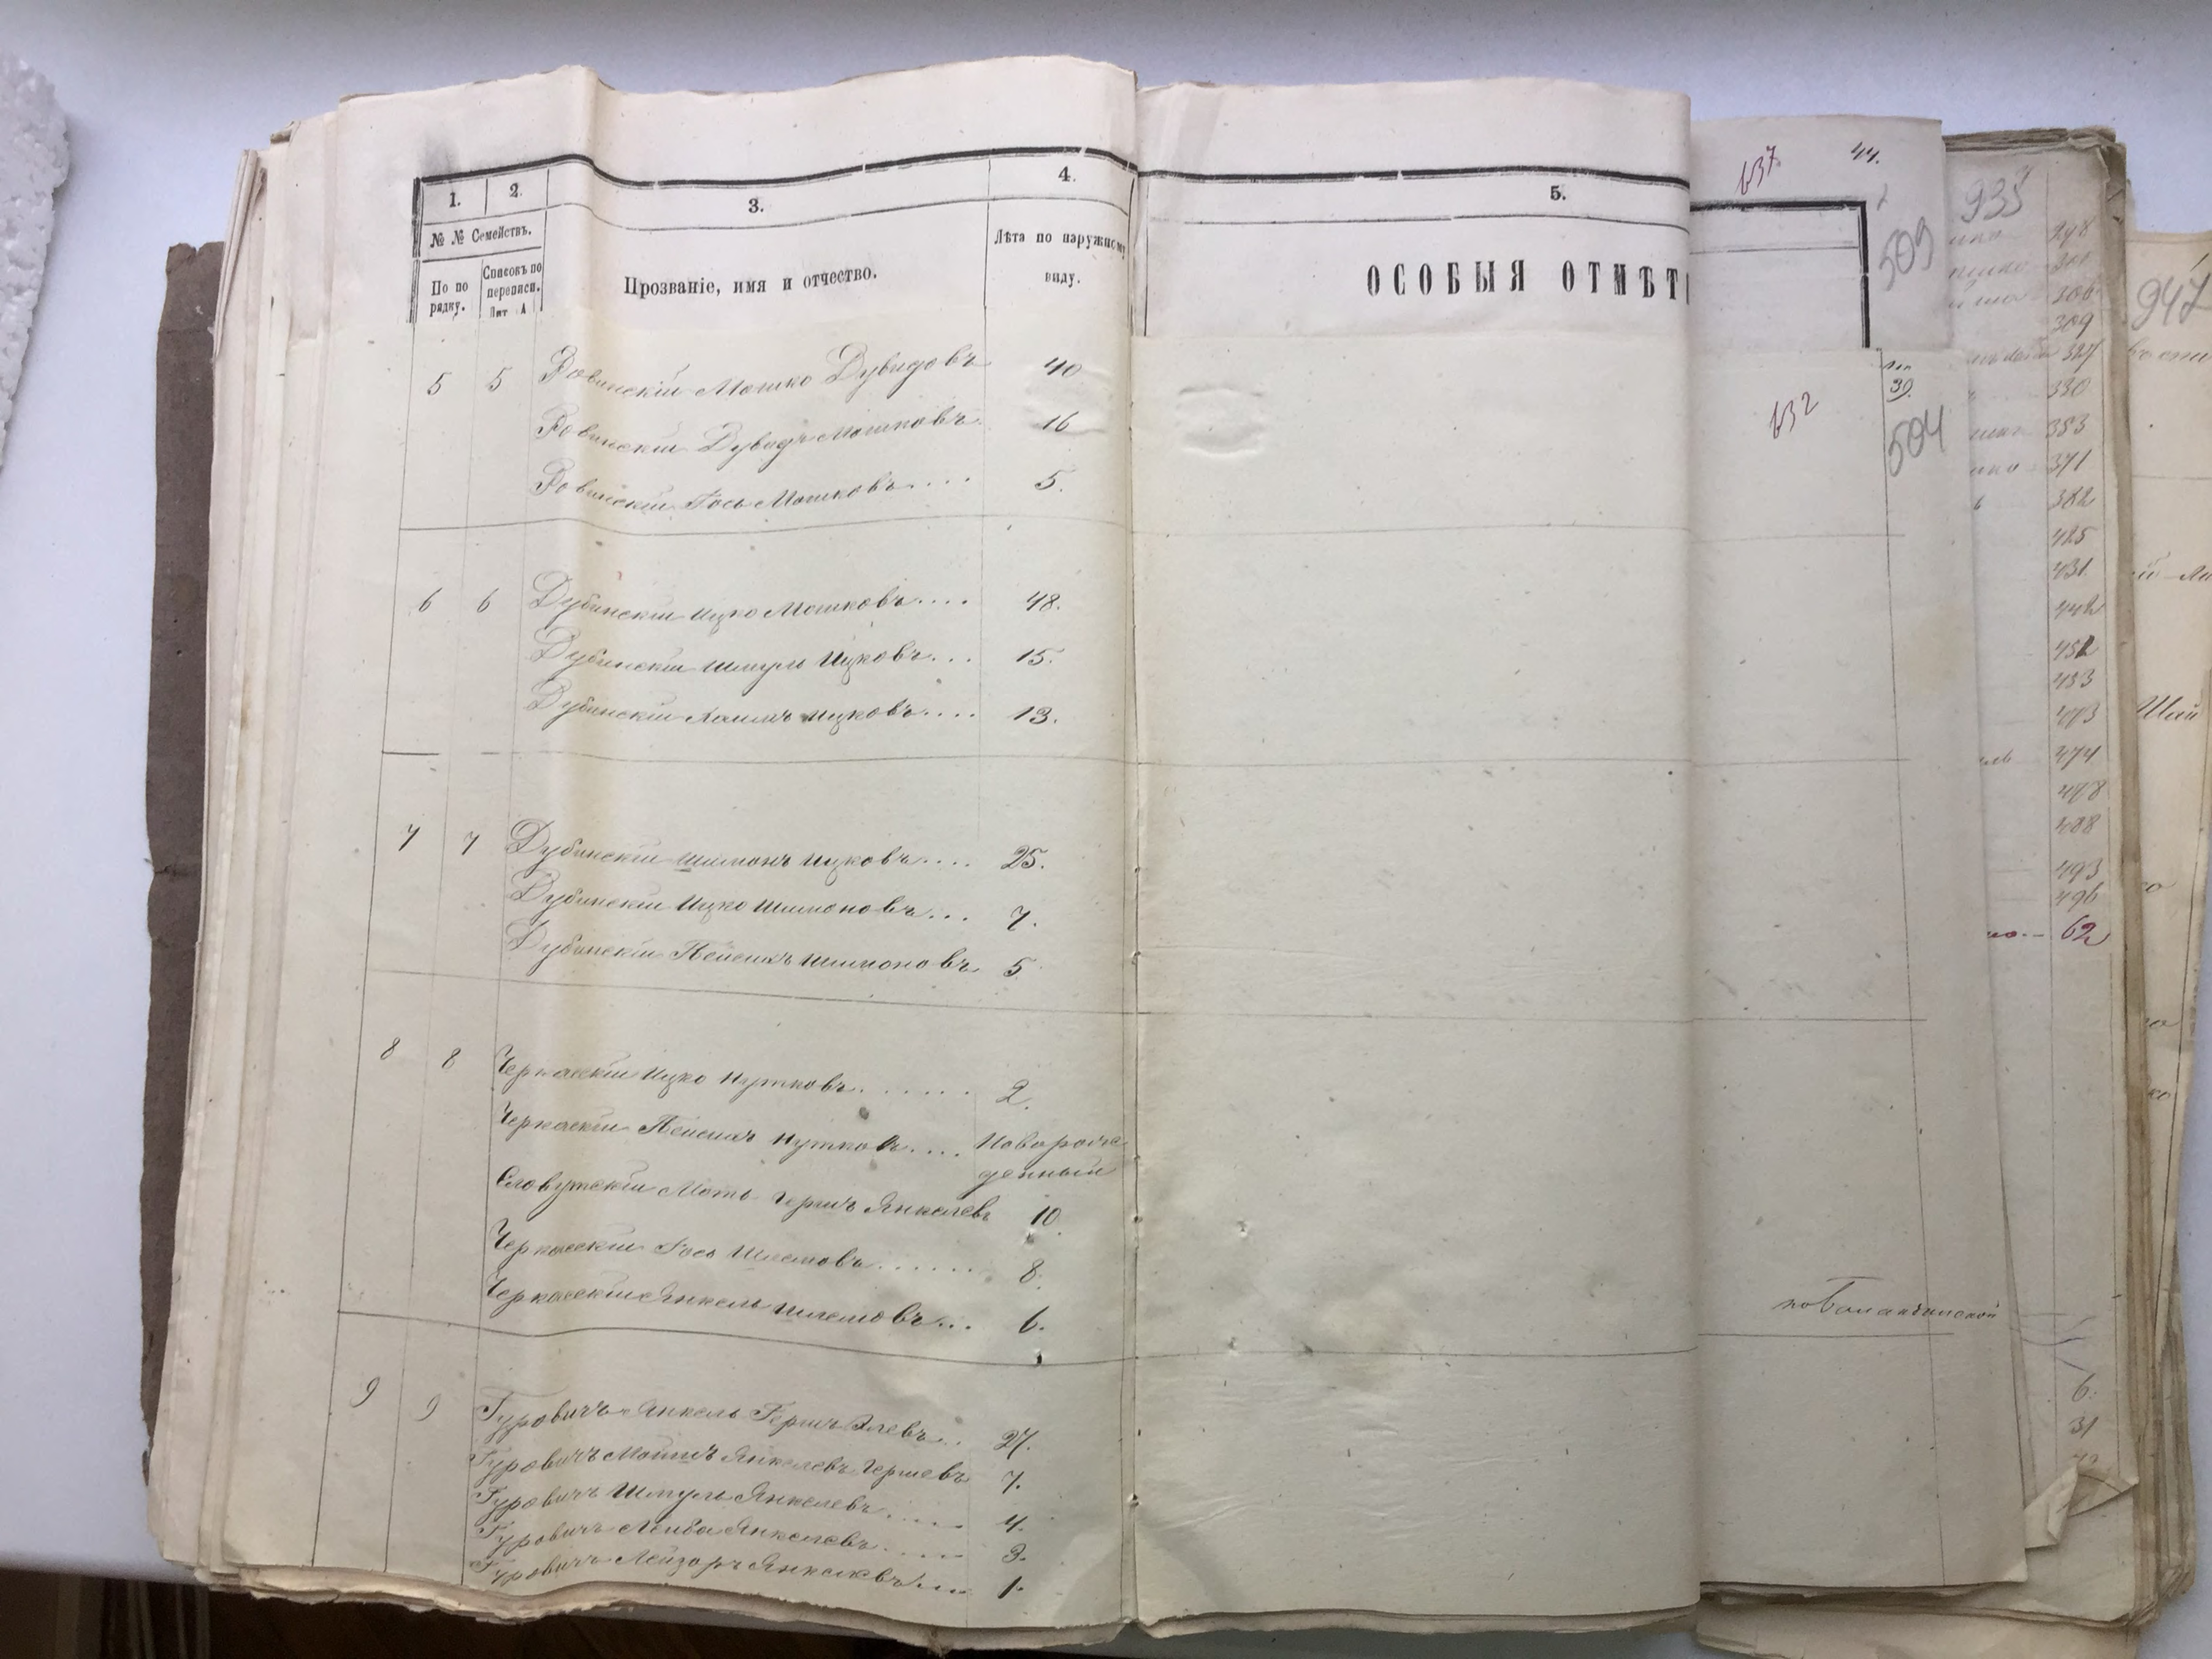 1. 2. 3. 4. 5.
№ № Семействъ.
По по
рядку.
Списокъ по
переписи.
Лит А
Прозваніе, имя и отчество.
Лѣта по наружному
виду.
ОСОБЫЯ ОТМѢТ
5 5 Ровинскій Мошко Дувидовъ 40
Ровинскій Дувидъ Мошковъ 16
Ровинскій Іось Мошковъ.... 5.
6 6 Дубинскій Ицко Мошковъ.... 48.
Дубинскій Шмуль Ицковъ... 15.
Дубинскій Хаимъ Ицковъ.... 13.
7 7 Дубинскій Шимонъ Ицковъ.... 25.
Дубинскій Ицко Шимоновъ... 7.
Дубинскій Пейсихъ Шимоновъ 5.
8 8 Черкаскій Ицко Нутковъ...... 2.
Черкаскій Пейсихъ Нутковъ.... Новорож
денный
Славутскій Моть Гершъ Янкелевъ 10
Черкасскій Іось Шлемовъ...... 8.
Черкасскій Янкель Шлемовъ... 6.
9 9 Гуровичъ Янкель Гершъ Элевъ.. 27.
Гуровичъ Мошко Янкелевъ Гершевъ 7.
Гуровичъ Шмуль Янкелевъ..... 4.
Гуровичъ Лейба Янкелевъ..... 3.
Гуровичъ Лейзоръ Янкелевъ.... 1.
637 44.
509
632
39.
504
935
298
301
306
309
327
330
353
371
382
425
431
442
452
453
473
474
478
488
493
496
62
6.
31
947
Шай